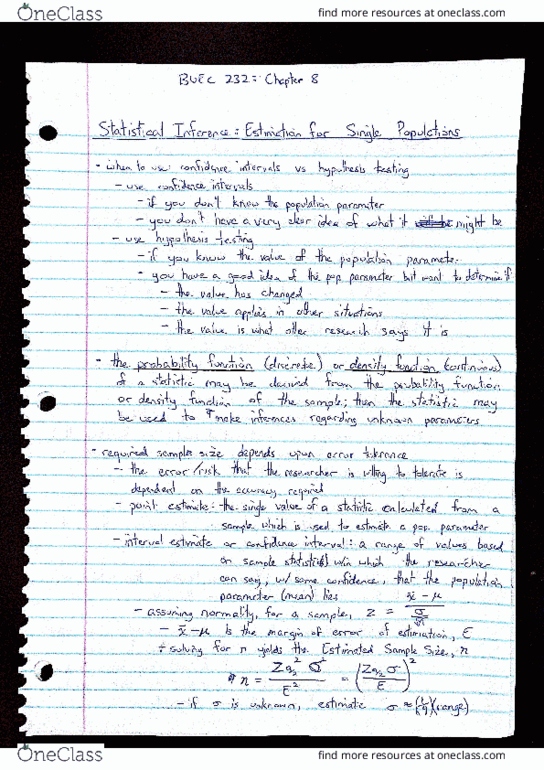 OneClass
find more resources at oneclass.com
BUEC 232: Chapter 8
Statistical Inference: Estimation for Single Populations
- when to use confidence intervals vs hypothesis testing
- use confidence intervals
- if you don't know the population parameter
- you don't have a very clear idea of what it might be
- use hypothesis testing
- if you know the value of the population parameter
- you have a good idea of the pop parameter but want to determine if
- the value has changed
- the value applies in other situations
- the value is what other research says it is
- the probability function (discrete) or density function (continuous)
of a statistic may be derived from the probability function
or density function of the sample; then the statistic may
be used to make inferences regarding unknown parameters
- required sample size depends upon error tolerance
- the error/risk that the researcher is willing to tolerate is
dependent on the accuracy required
- point estimate: the single value of a statistic calculated from a
sample which is used to estimate a pop. parameter
- interval estimate or confidence interval: a range of values based
on sample statistics w/in which the researcher
can say, w/ some confidence, that the population
parameter (mean) lies
- assuming normality, for a sample, z = (x̄ - μ) / (σ/√n)
- x̄ - μ is the margin of error of estimation, E
+ solving for n yields the Estimated Sample Size, n
* n = Zα/2² σ² / E² = (Zα/2 σ / E)²
- if σ is unknown, estimate σ ≈ (1/4)(range)
OneClass
find more resources at oneclass.com